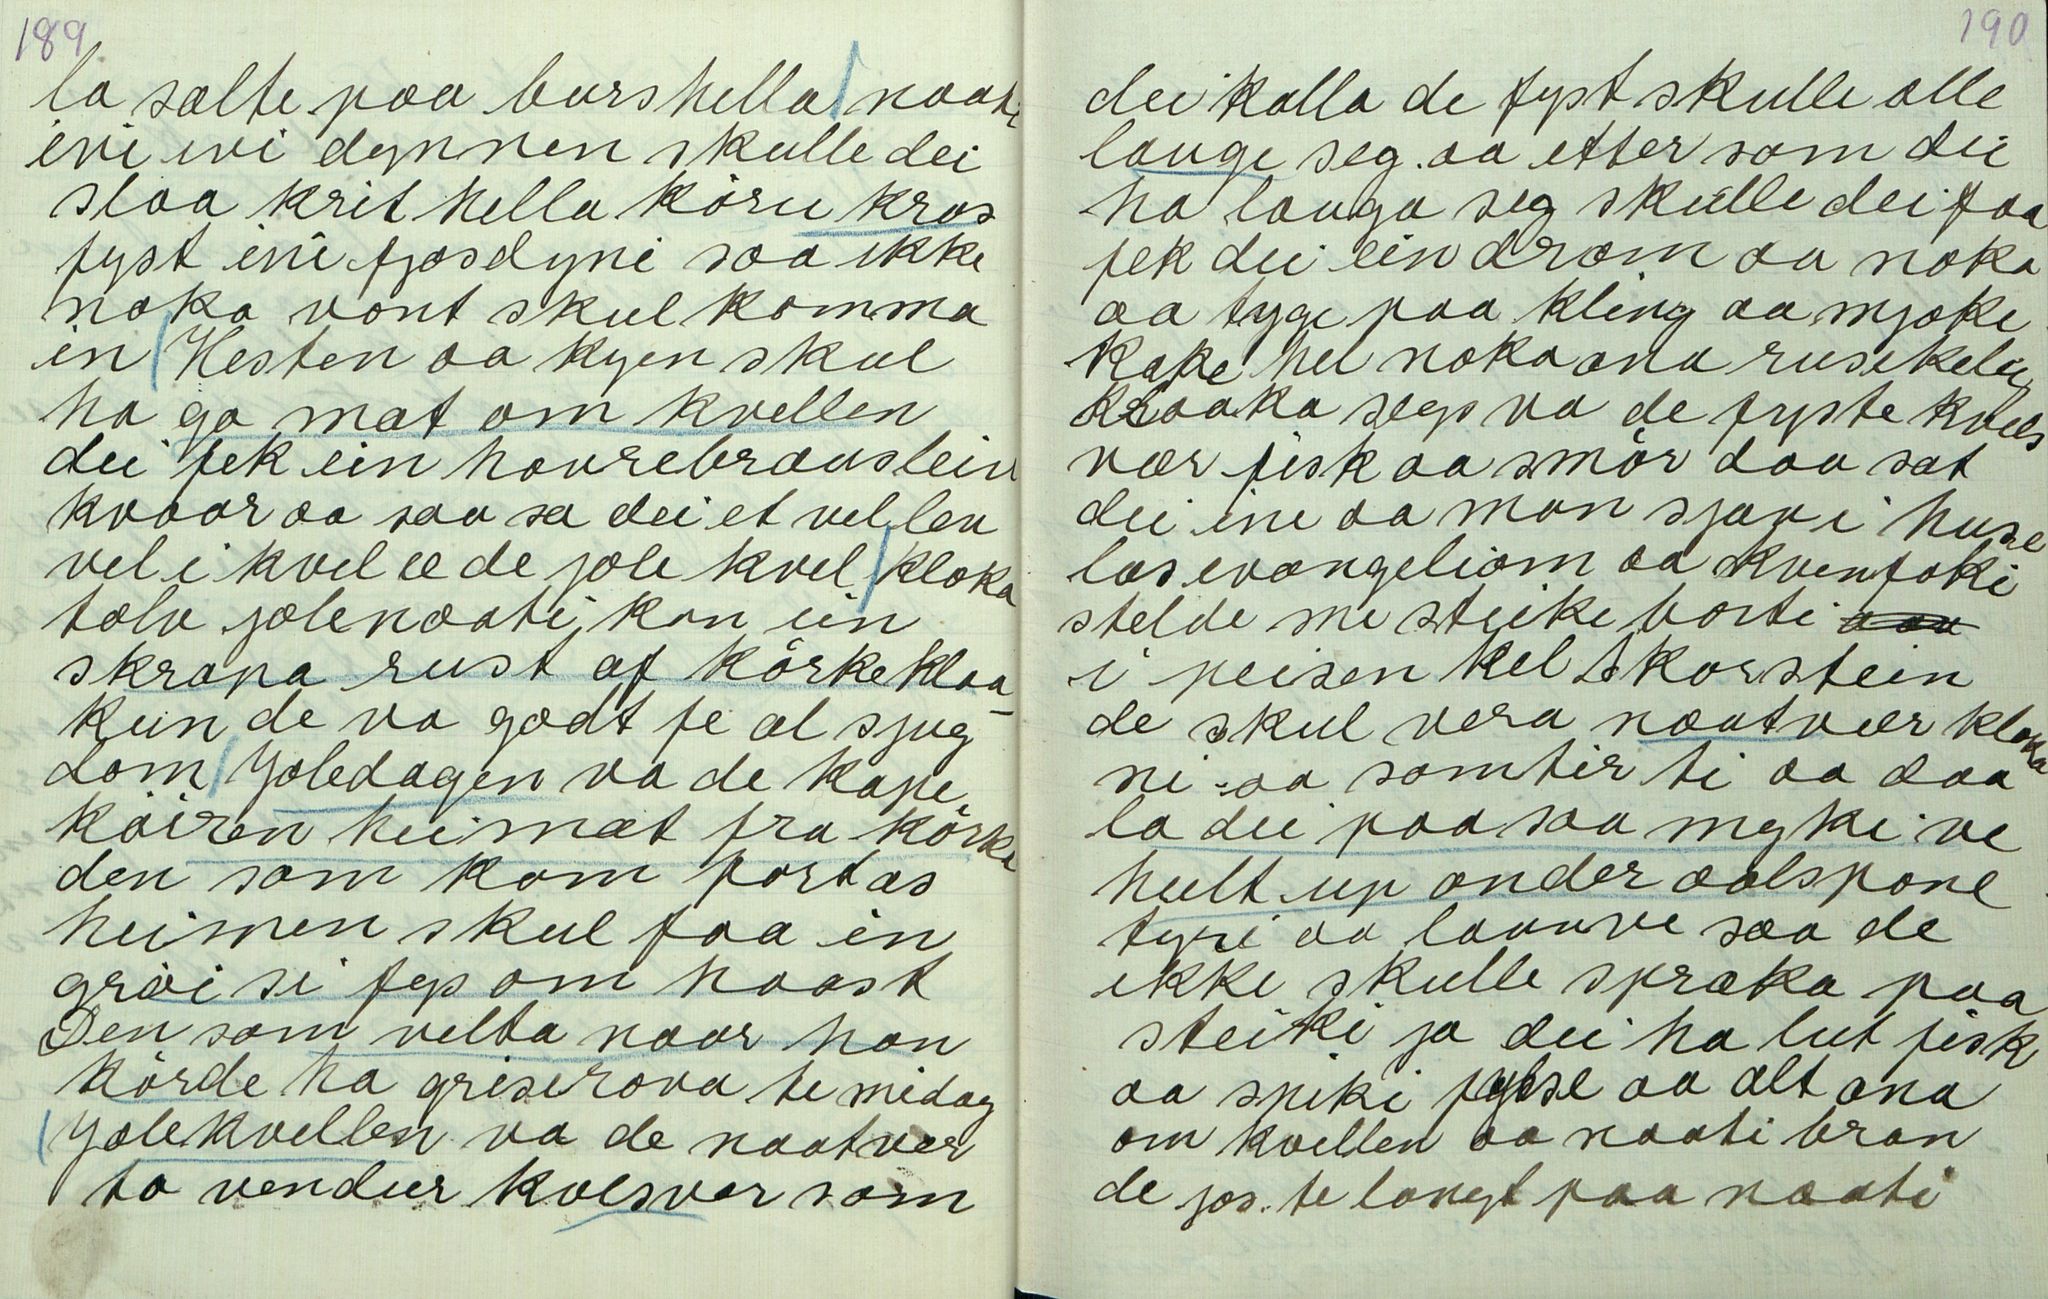 189
la salte paa burshella naate
ivi ivi dynnen skulle dei
slaa krit hella köru kros
fyst ivi fjosdyni saa ikke
noko vont skul komma
in Hesten aa kyen skul
ha go mat om kvellen
dei fek ein havrebrauslein
kvaar aa saa sa dei et vel lev
vel i kvel ee de jole kvel kloka
tolv jolenaati kan ein
skrapa rust af körkeklaa-
kun de va godt fe al sjug
dom Joledagen va de kape
köiren heimat fra körka
den som kom fortas
heimen skul faa in
gröi si fys om haast
Den som velta naar han
körde ha griserova te midag
Jolekvellen va de naatver
to vendeer kvelsver som
190
dei kalla de fyst skulle alle
lauge seg aa etter som dei
ha lauga seg skulle dei faa
fek dei ein dram aa noka
aa tyge paa kling aa mjøke
kake hel noka ana rusekeleg
kraaka segs va de fyste kvels
vær fisk aa smör daa sat
dei ine aa man sjøv i huse
las evangeliom aa kvenfoki
stelde me steike borti
i peisen hel skorstein
de skul vera naatvær kloka
ni aa somtir ti aa daa
la dei paa saa myki ve
heelt up onder aalspone
tyri aa lauvve saa de
ikke skulle spraka paa
steiki ja dei ha lut fisk
aa spiki fylse aa alt ana
om kvellen aa naati bran
de jos te langt paa naati